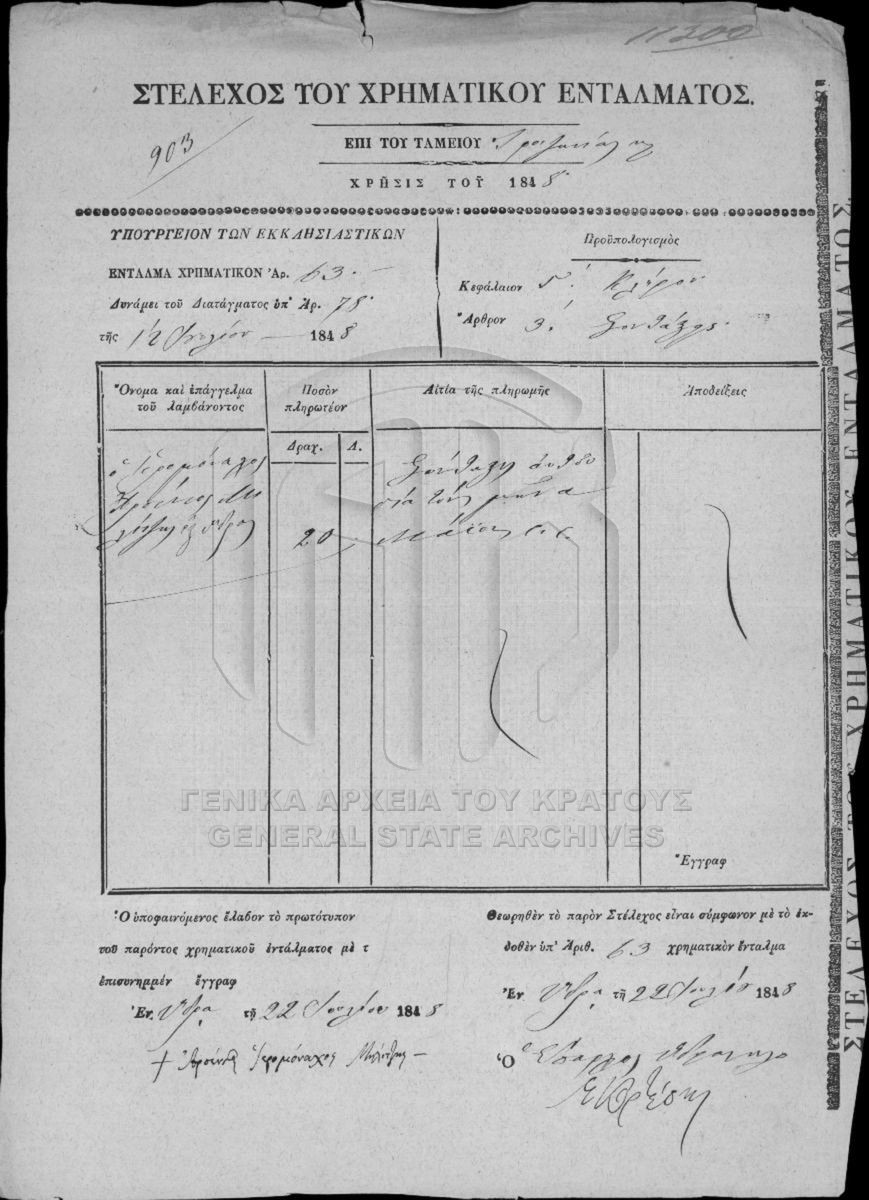 11300
ΣΤΕΛΕΧΟΣ ΤΟΥ ΧΡΗΜΑΤΙΚΟΥ ΕΝΤΑΛΜΑΤΟΣ.
903
ΕΠΙ ΤΟΥ ΤΑΜΕΙΟΥ
ΧΡΗΣΙΣ ΤΟΥ 1848
ΥΠΟΥΡΓΕΙΟΝ ΤΩΝ ΕΚΚΛΗΣΙΑΣΤΙΚΩΝ
ΕΝΤΑΛΜΑ ΧΡΗΜΑΤΙΚΟΝ Ἀρ. 63.
Δυνάμει τοῦ Διατάγματος ὑπ' Ἀρ. 78
τῆς 12 Ἰουλίου 1848
Προϋπολογισμὸς
Κεφάλαιον 5. Κλήρου
Ἄρθρον 3.
Ὄνομα καὶ ἐπάγγελμα
τοῦ λαμβάνοντος
Ποσὸν
πληρωτέον
Αἰτία τῆς πληρωμῆς
Ἀποδείξεις
Δραχ. Λ.
ὁ Ἱερομόναχος
20
μῆνα
Μάϊον
Ἔγγραφ
ΓΕΝΙΚΑ ΑΡΧΕΙΑ ΤΟΥ ΚΡΑΤΟΥΣ
GENERAL STATE ARCHIVES
Ὁ ὑποφαινόμενος ἔλαβον τὸ πρωτότυπον
τοῦ παρόντος χρηματικοῦ ἐντάλματος μὲ τ
ἐπισυνημμέν ἔγγραφ
Ἐν Ὕδρᾳ τῇ 22 Ἰουλίου 1848
+ Ἀρσένιος Ἱερομόναχος
Θεωρηθὲν τὸ παρὸν Στέλεχος εἶναι σύμφωνον μὲ τὸ ἐκ-
δοθὲν ὑπ' Ἀριθ. 63 χρηματικὸν ἔνταλμα
Ἐν Ὕδρᾳ τῇ 22 Ἰουλίου 1848
Ὁ Ἔπαρχος
ΣΤΕΛΕΧΟΣ ΤΟΥ ΧΡΗΜΑΤΙΚΟΥ ΕΝΤΑΛΜΑΤΟΣ